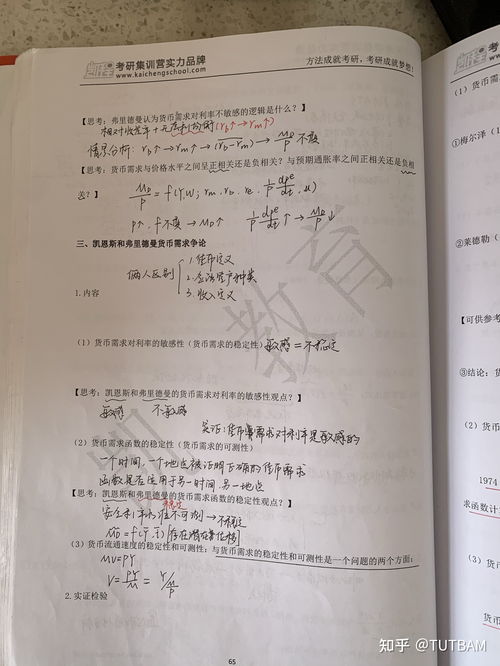 考研集训营实力品牌
www.kaichengschool.com
方法成就考研，考研成就梦想！
【思考：弗里德曼认为货币需求对利率不敏感的逻辑是什么？】
相对收益率+无套利均衡(rb↑→rm↑)
情景分析：rb↑→rm↑→(rb-rm)→ MD/P 不变
【思考：货币需求与价格水平之间呈正相关还是负相关？与预期通胀率之间正相关还是负相
关？】 MD/P = f(Y,W; rm, rb, re, 1/P dPe/dt, u)
P↑, f不变→MD↑ 1/P dPe/dt ↑→ MD/P ↓
三、凯恩斯和弗里德曼货币需求争论
俩人区别
1.货币定义
2.金融资产种类
3.收入定义
1.内容
（1）货币需求对利率的敏感性（货币需求的稳定性）敏感=不稳定
【思考：凯恩斯和弗里德曼的货币需求对利率的敏感性观点？】
敏感 不敏感
实证：货币需求对利率是敏感的
（2）货币需求函数的稳定性（货币需求的可测性）
一个时间，一个地点被证明正确的货币需求
函数是否适用于另一时间，另一地点
【思考：凯恩斯和弗里德曼的货币需求函数的稳定性观点？】
稳定
→不稳定
（3）货币流通速度的稳定性和可测性：与货币需求的稳定性和可测性是一个问题的两个方面：
MV=PY
V= PY/M = Y/(M/P)
2.实证检验
65
（1）货币需
①梅尔泽（1
②莱德勒（
【可供参考
③结论：
（2）货币
1974
求函数计
（3）货币
货币
知乎 @TUTBAM